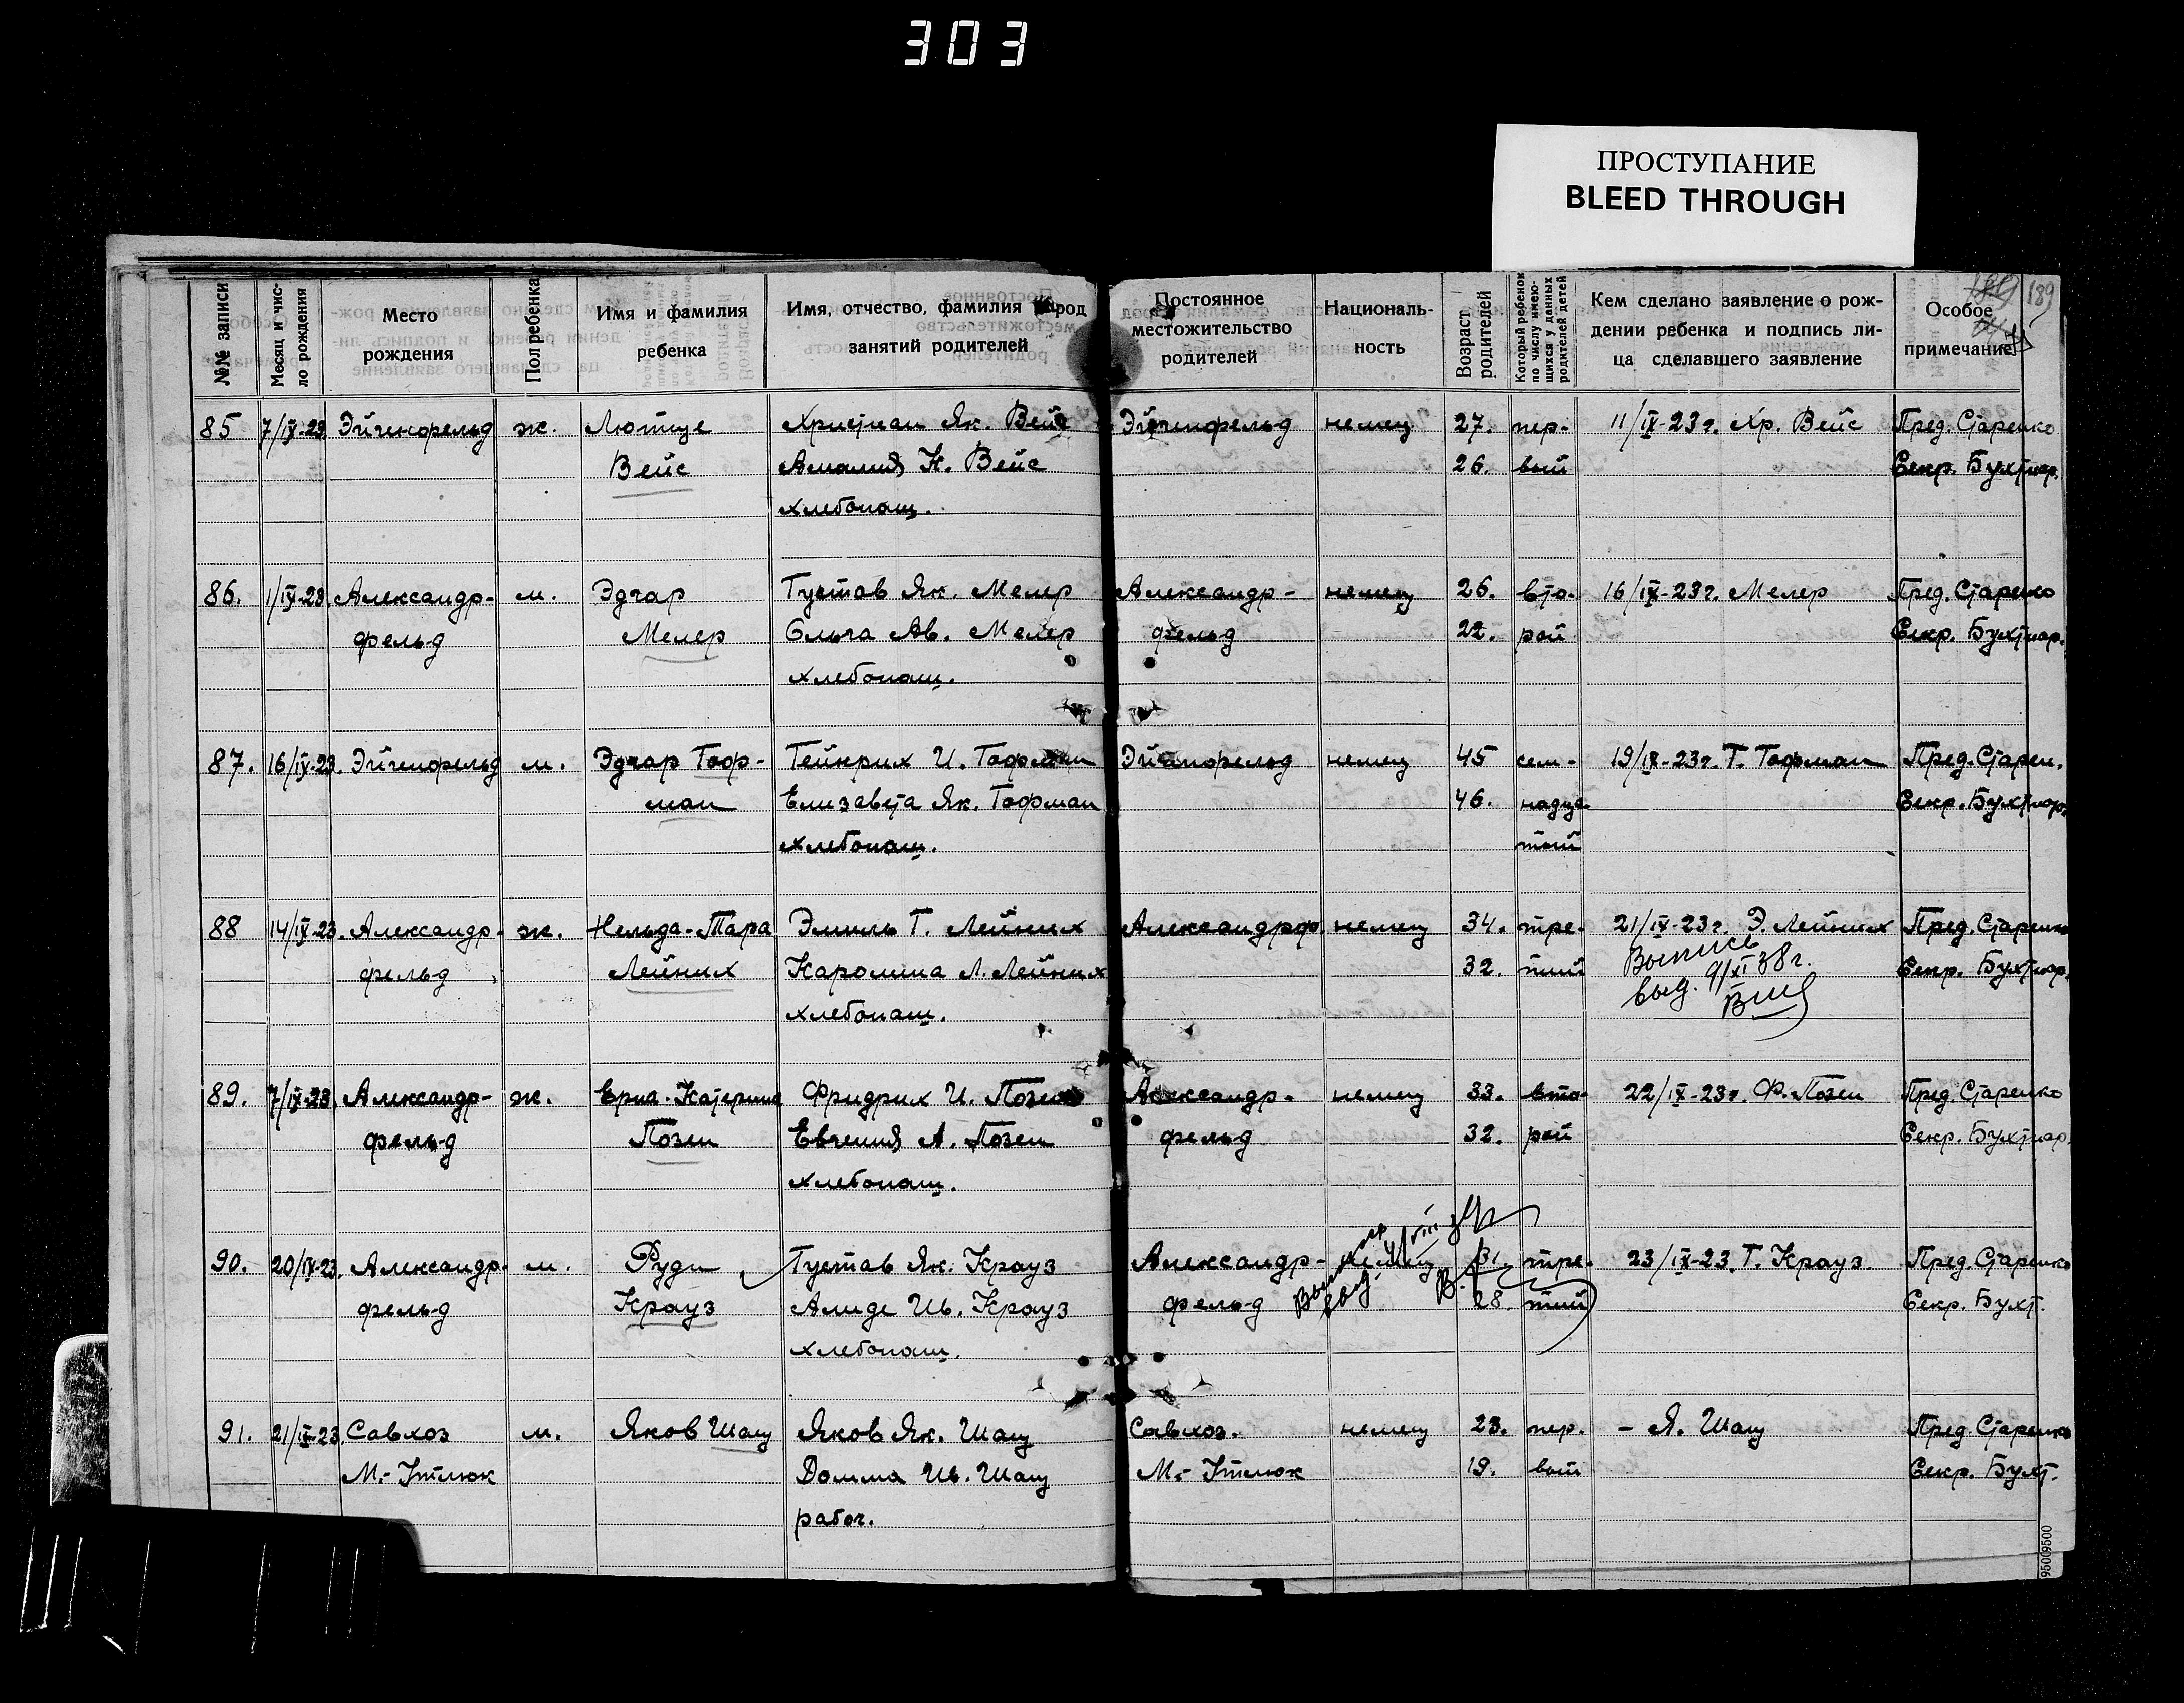 303
ПРОСТУПАНИЕ
BLEED THROUGH
189
№№ записи
Месяц и чис-
ло рождения
Место
рождения
Пол ребенка
Имя и фамилия
ребенка
Имя, отчество, фамилия род
занятий родителей
Постоянное
местожительство
родителей
Националь-
ность
Возраст
родителей
Который ребенок
по числу имею-
щихся у данных
родителей детей
Кем сделано заявление о рож-
дении ребенка и подпись ли-
ца сделавшего заявление
Особое
примечание
85 7/IX-23 Эйгенфельд ж. Лютце Христиан Як. Вейс Эйгенфельд немец 27. пер- 11/IX-23г. Хр. Вейс Пред. Старенко
Вейс Амалия К. Вейс 26. вый Секр. Бухтиар.
хлебопаш.
86. 1/IX-23. Александр- м. Эдгар Густав Як. Мелер Александр- немец 26. вто- 16/IX-23г. Мелер Пред. Старенко
фельд Мелер Ольга Ав. Мелер фельд 22. рой Секр. Бухтиар.
хлебопаш.
87. 16/IX-23. Эйгенфельд м. Эдгар Гоф- Гейнрих И. Гофман Эйгенфельд немец 45 сем- 19/IX-23г. Г. Гофман Пред. Старен.
ман Елизавета Як. Гофман 46. надца
хлебопаш. тый Секр. Бухтиар.
88 14/IX-23. Александр- ж. Нельда-Тара Эмиль Г. Лейних Александрф немец 34. тре- 21/IX-23г. Э. Лейних Пред. Старенко
фельд Лейних Каролина Л. Лейних 32. тий Секр. Бухтиар.
Выпись
выд. 9/XI 38г.
хлебопаш.
89. 7/IX-23. Александр- ж. Ерна-Катерина Фридрих И. Позен Александр- немец 33. вто- 22/IX-23г. Ф. Позен Пред. Старенко
фельд Позен Евгения А. Позен фельд 32. рой Секр. Бухтиар.
хлебопаш.
90. 20/IX-23. Александр- м. Руди Густав Як. Крауз Александр- немец 31. тре- 23/IX-23. Г. Крауз Пред. Старенко
фельд Крауз Алиде Ив. Крауз фельд выд. 28. тий Секр. Бухт.
хлебопаш.
91. 21/IX-23. Савхоз м. Яков Шац Яков Як. Шац Савхоз. немец 23. пер. - Я. Шац Пред. Старенко
М.-Утлюк Домма Ив. Шац М.-Утлюк 19. вый Секр. Бухт.
рабоч.